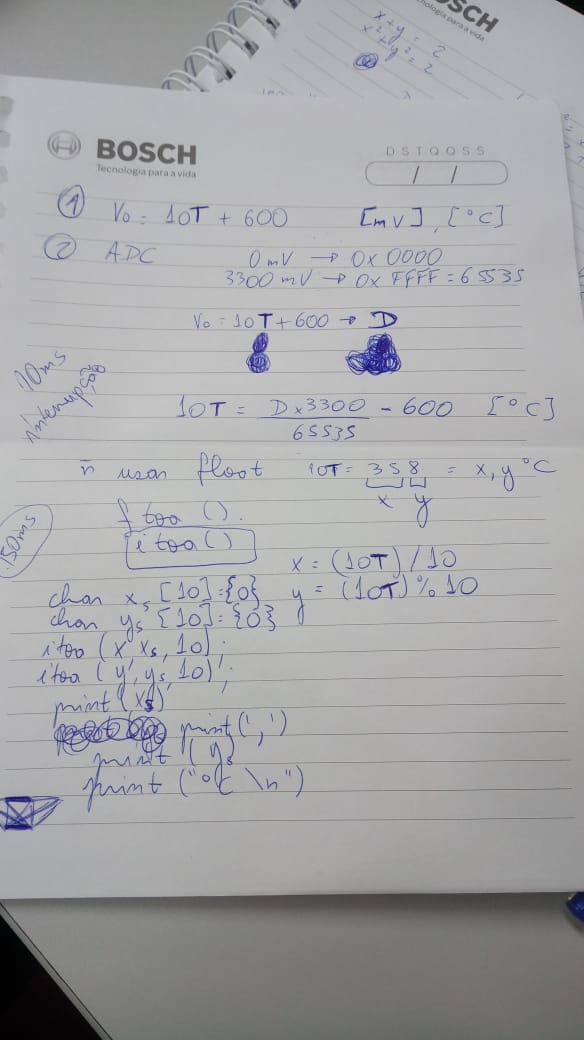 BOSCH
x+y = 2
x²+y² = 2
BOSCH
Tecnologia para a vida
D S T Q Q S S
/ /
① Vo = 10T + 600 [mV], [°C]
② ADC 0mV → 0x0000
3300mV → 0xFFFF = 65535
Vo = 10T+600 → D
10ms
interrupção
10T = D x 3300 / 65535 - 600 [°C]
ñ usar float 10T = 358 = x,y°C
x y
ftoa().
150ms
itoa()
x = (10T)/10
char xs [10]={0} y = (10T)%10
char ys [10]={0}
itoa (x, xs, 10);
itoa (y, ys, 10);
print (xs)
print(',')
print (ys
print ("°C \n")